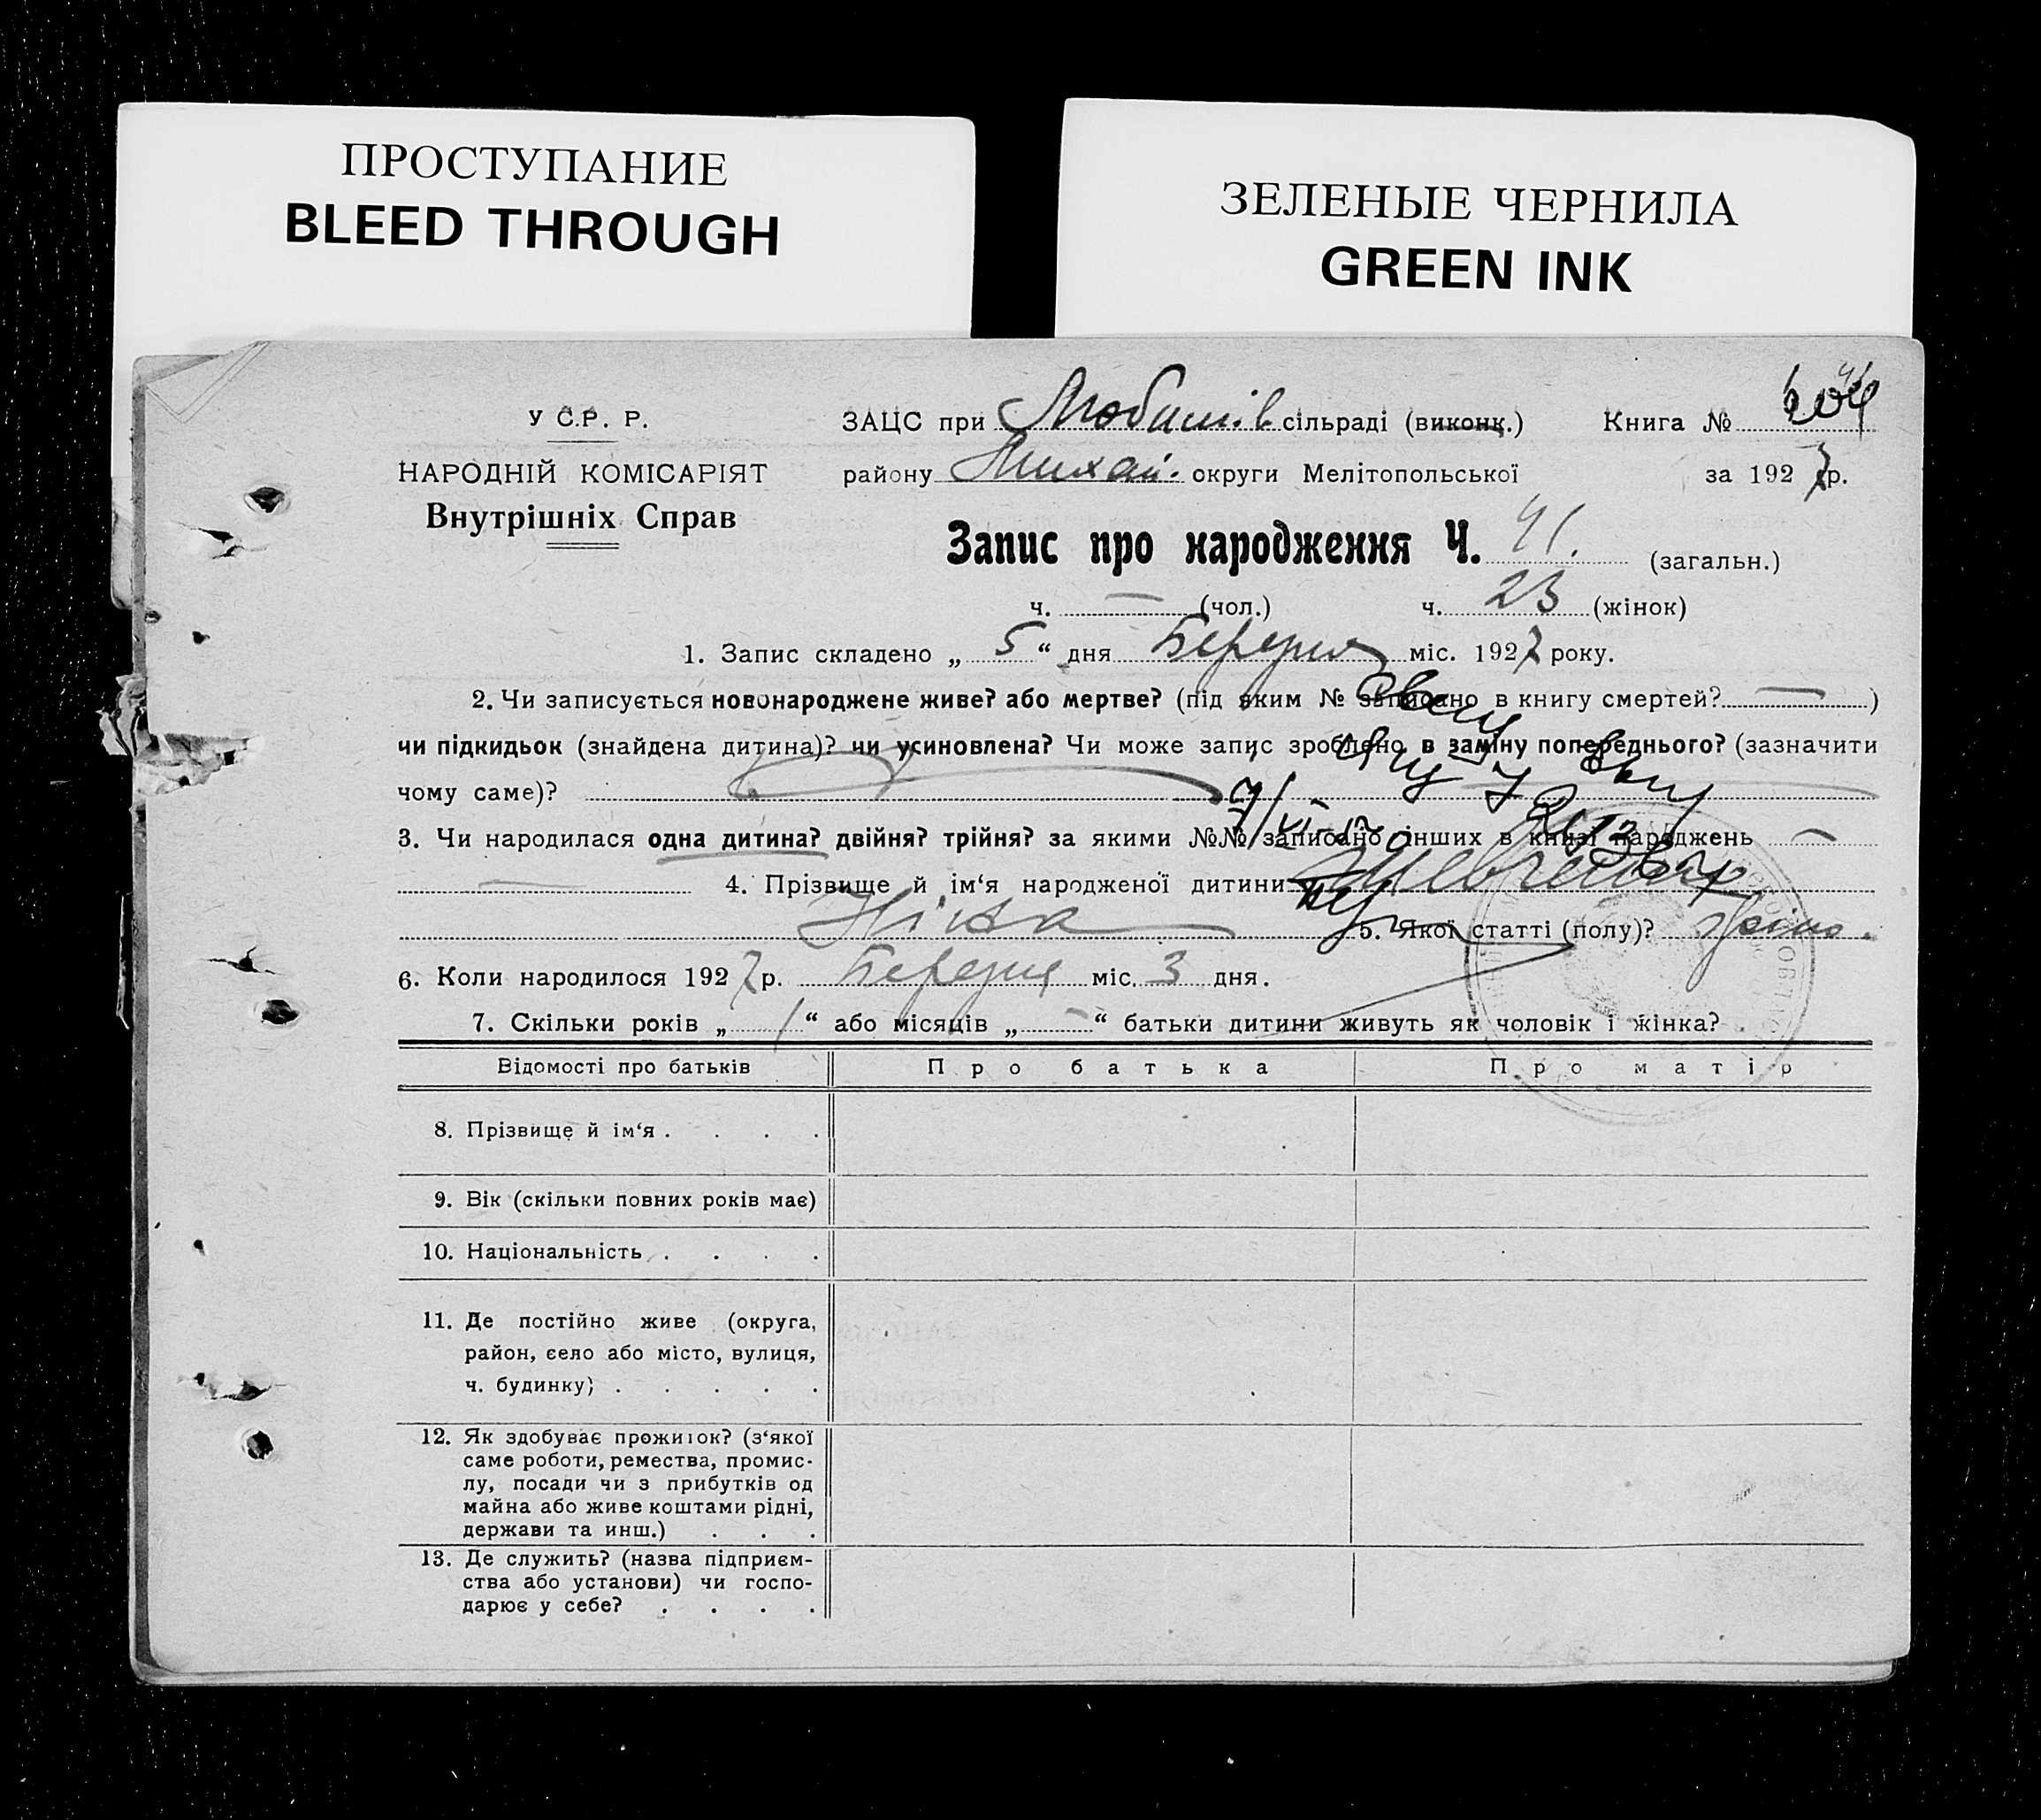 ПРОСТУПАНИЕ
BLEED THROUGH
ЗЕЛЕНЫЕ ЧЕРНИЛА
GREEN INK
У С.Р. Р.
НАРОДНІЙ КОМІСАРІЯТ
Внутрішніх Справ
ЗАЦС при Любашів сільраді (виконк.) Книга №
району Михай. округи Мелітопольської за 1927 р.
Запис про народження Ч. 41. (загальн.)
ч. — (чол.) ч. 23 (жінок)
1. Запис складено „ 5 “ дня Березня міс. 1927 року.
2. Чи записується новонароджене живе? або мертве? (під яким № записано в книгу смертей? — )
чи підкидьок (знайдена дитина)? чи усиновлена? Чи може запис зроблено в заміну попереднього? (зазначити
чому саме)?
3. Чи народилася одна дитина? двійня? трійня? за якими №№ записано інших в книзі народжень —
— 4. Прізвище й ім‘я народженої дитини Шевченко
Ніна 5. Якої статті (полу)? жіно.
6. Коли народилося 1927 р. Березня міс. 3 дня.
7. Скільки років „ 1 “ або місяців „ — “ батьки дитини живуть як чоловік і жінка?
Відомості про батьків Про батька Про матір
8. Прізвище й ім‘я . . . .
9. Вік (скільки повних років має)
10. Національність . . . .
11. Де постійно живе (округа,
район, село або місто, вулиця,
ч. будинку) . . . . .
12. Як здобуває прожиток? (з‘якої
саме роботи, ремества, промис-
лу, посади чи з прибутків од
майна або живе коштами рідні,
держави та инш.) . . .
13. Де служить? (назва підприєм-
ства або установи) чи госпо-
дарює у себе? . . . .